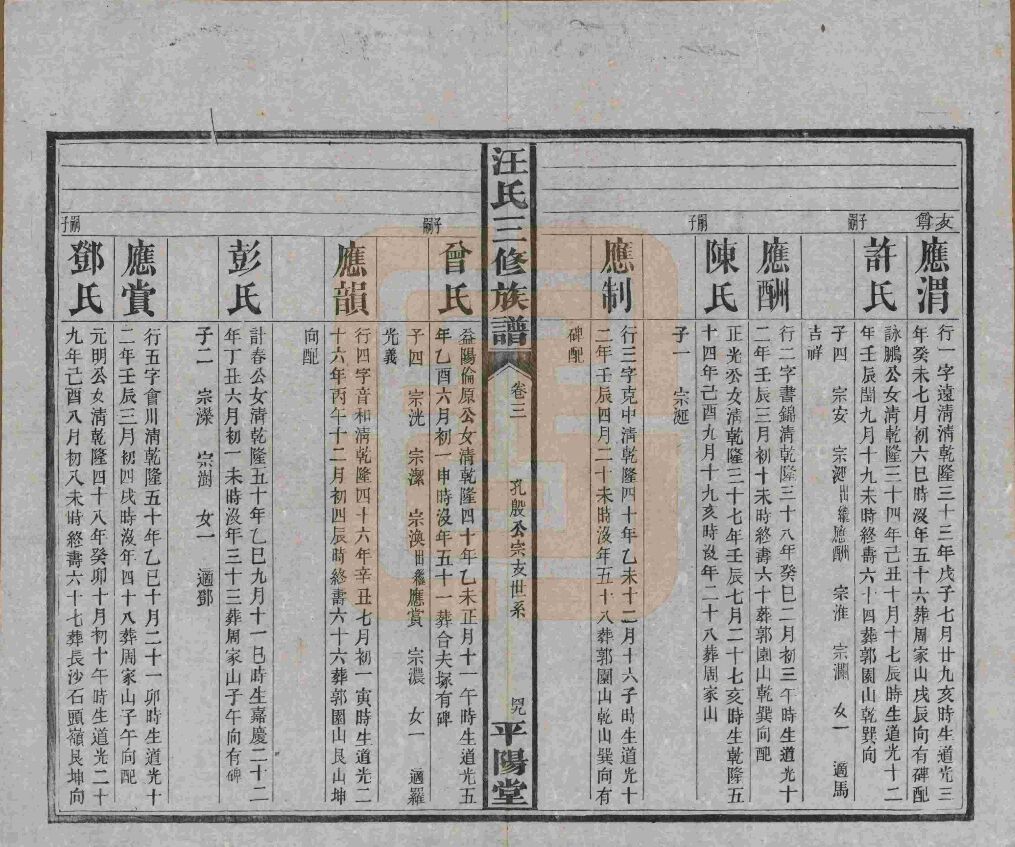 友
尊
應渭
行一字遠淸淸乾隆三十三年戊子七月廿九亥時生道光三
年癸未七月初六巳時沒年五十六葬周家山戌辰向有碑配
子嗣
許氏
詠鵬公女淸乾隆三十四年己丑十月十七辰時生道光十二
年壬辰閏九月十九未時終壽六十四葬郭園山乾巽向
子四 宗安 宗涎出繼應酬 宗淮 宗瀾 女一 適馬
吉祥
應酬
行二字書錦淸乾隆三十八年癸巳二月初三午時生道光十
二年壬辰三月初十未時終壽六十葬郭園山乾巽向配
子嗣
陳氏
正光公女淸乾隆三十七年壬辰七月二十七亥時生乾隆五
十四年己酉九月十九亥時沒年二十八葬周家山
子一 宗涎
應制
行三字克中淸乾隆四十年乙未十二月十六子時生道光十
二年壬辰四月二十未時沒年五十八葬郭園山乾山巽向有
碑配
汪氏三修族譜
卷三
孔殷公宗支世系
平陽堂
子嗣
曾氏
益陽倫原公女淸乾隆四十年乙未正月十一午時生道光五
年乙酉六月初一申時沒年五十一葬合夫塚有碑
子四 宗洸 宗潔 宗渙出繼應賞 宗濃 女一 適羅
光義
應韻
行四字音和淸乾隆四十六年辛丑七月初一寅時生道光二
十六年丙午十二月初四辰時終壽六十六葬郭園山艮山坤
向配
彭氏
計春公女淸乾隆五十年乙巳九月十一巳時生嘉慶二十二
年丁丑六月初一未時沒年三十三葬周家山子午向有碑
子二 宗濚 宗澍 女一 適鄧
應賞
行五字會川淸乾隆五十年乙巳十月二十一卯時生道光十
二年壬辰三月初四戌時沒年四十八葬周家山子午向配
子嗣
鄧氏
元明公女淸乾隆四十八年癸卯十月初十午時生道光二十
九年己酉八月初八未時終壽六十七葬長沙石頭嶺艮坤向